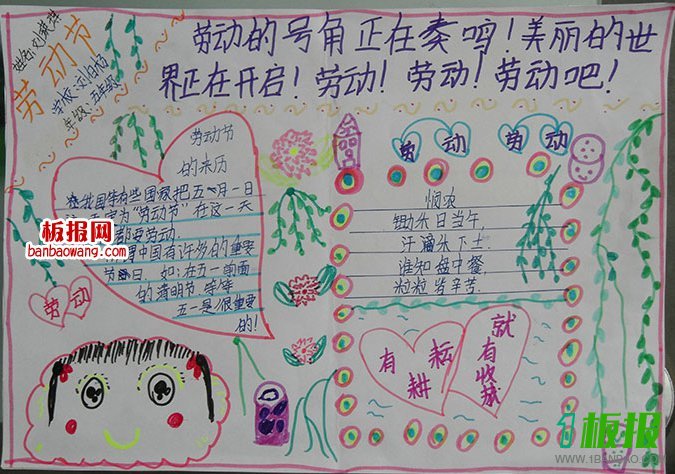 劳动节
劳动的号角正在奏鸣！美丽的世
界正在开启！劳动！劳动！劳动吧！
姓名：
年级：五年级
劳动节
的来历
我国等有些国家把五月一日
"劳动节"在这一天
都要劳动
中国有许多的重要
节日，如：在五一前面
的清明节 等等
五一是很重要
的！
劳 动
劳 动
劳 动
悯农
锄禾日当午
汗滴禾下土
谁知盘中餐
粒粒皆辛苦.
有 耘
耕
就
有
收
获
板报网
banbaowang.com
1板报
WWW.1BANBAO.COM